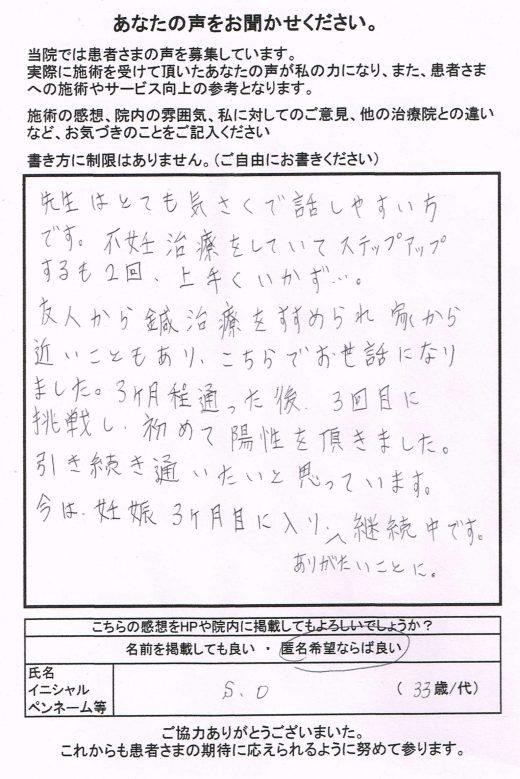 あなたの声をお聞かせください。
当院では患者さまの声を募集しています。
実際に施術を受けて頂いたあなたの声が私の力になり、また、患者さま
への施術やサービス向上の参考となります。
施術の感想、院内の雰囲気、私に対してのご意見、他の治療院との違い
など、お気づきのことをご記入ください
書き方に制限はありません。(ご自由にお書きください)
先生はとても気さくで話しやすい方
です。不妊治療をしていてステップアップ
するも2回、上手くいかず…。
友人から鍼治療をすすめられ家から
近いこともあり、こちらでお世話になり
ました。3ヶ月程通った後、3回目に
挑戦し、初めて陽性を頂きました。
引き続き通いたいと思っています。
今は、妊娠3ヶ月目に入り、継続中です。
ありがたいことに。
こちらの感想をHPや院内に掲載してもよろしいでしょうか?
名前を掲載しても良い ・ 匿名希望ならば良い
氏名
イニシャル
ペンネーム等
S.O
( 33歳/代)
ご協力ありがとうございまいた。
これからも患者さまの期待に応えられるように努めて参ります。